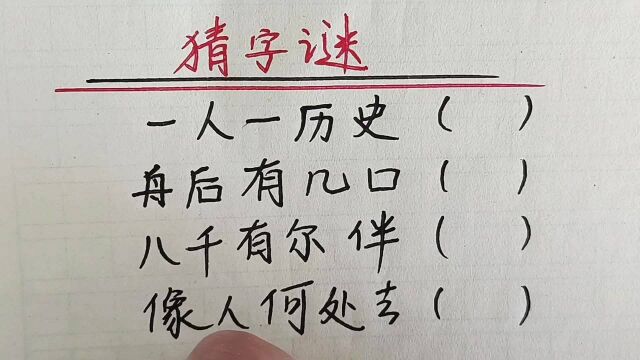 猜字谜
一人一历史（ ）
舟后有几口（ ）
八千有尔伴（ ）
像人何处去（ ）